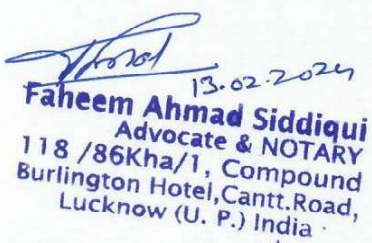 13.02.2024
Faheem Ahmad Siddiqui
Advocate & NOTARY
118 /86Kha/1, Compound
Burlington Hotel,Cantt.Road,
Lucknow (U. P.) India